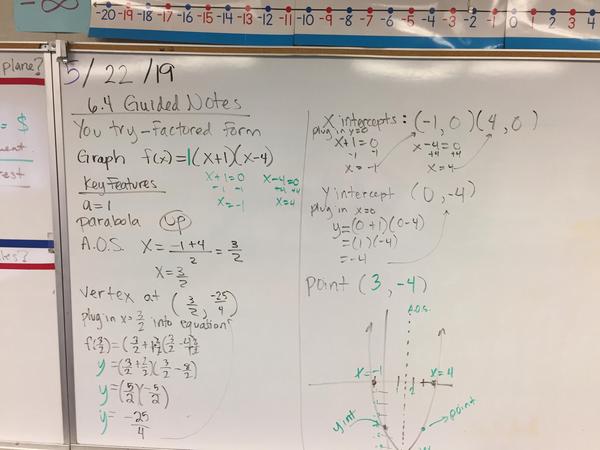 -∞
-20 -19 -18 -17 -16 -15 -14 -13 -12 -11 -10 -9 -8 -7 -6 -5 -4 -3 -2 -1 0 1 2 3 4
plane?
= $
5/22/19
6.4 Guided Notes
You try-Factored Form
Graph f(x)=1(x+1)(x-4)
Key Features
x+1=0 x-4=0
-1 -1 +4 +4
x=-1 x=4
a=1
parabola up
A.O.S. x = -1+4/2 = 3/2
x = 3/2
Vertex at (3/2, -25/4)
plug in x=3/2 into equation
f(3/2)=(3/2+1
y=(3/2+2/2)(3/2-8/2)
y=(5/2)(-5/2)
y= -25/4
x intercepts: (-1,0)(4,0)
plug in y=0
x+1=0 x-4=0
-1 -1 +4 +4
x=-1 x=4
y intercept (0,-4)
plug in x=0
y=(0+1)(0-4)
=(1)(-4)
=-4
point (3,-4)
A.O.S.
x=-1 x=4
y int
point